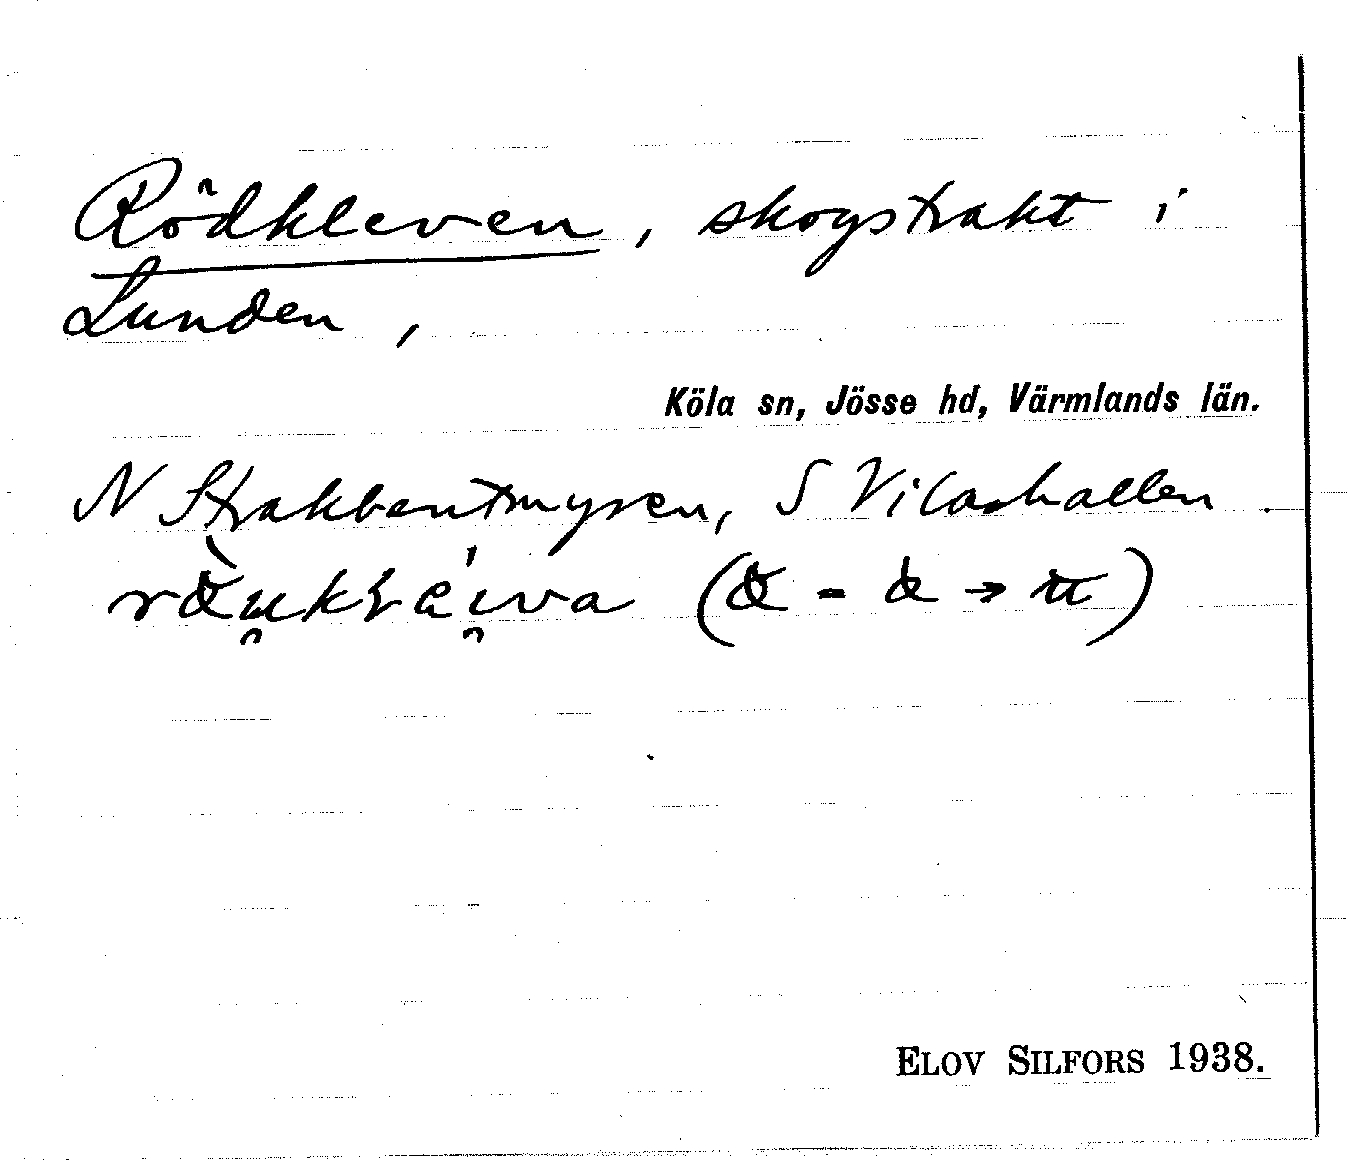 Rödkleven, skogstrakt i
Lunden,
Köla sn, Jösse hd, Värmlands län.
N Strakbentmyren, S Vilarhallen.
ELOV SILFORS 1938.